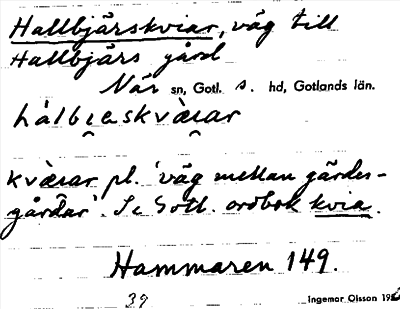 Hallbjärskviar, väg till
Hallbjärs gård
När sn, Gotl. s. hd, Gotlands län.
kvarar pl. 'väg mellan gärdes-
gårdar'. Se Gotl. ordbok kvia.
Hammaren 149.
39 Ingemar Olsson